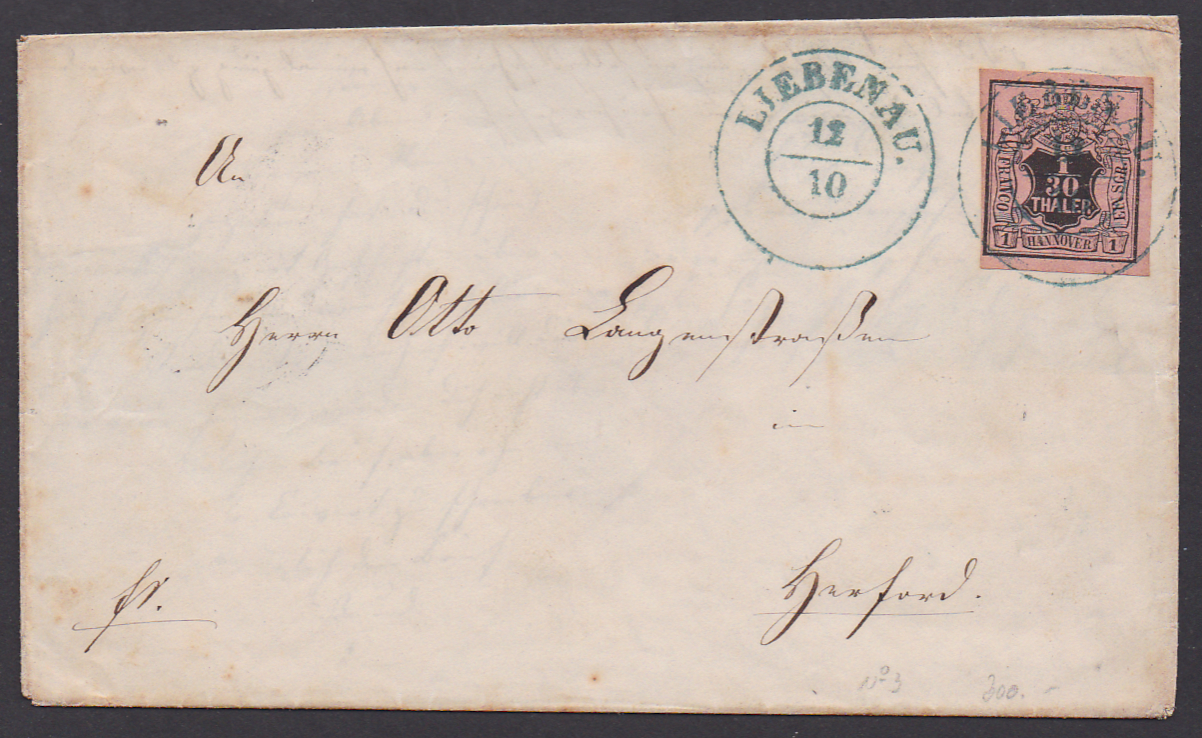 LIEBENAU.
12
10
LIEBENAU.
FRANCO
1
30
THALER
EIN SGR.
1 HANNOVER 1
An
Herrn Otto Langenstraßen
in
Herford.
fr.
No 3
300.-